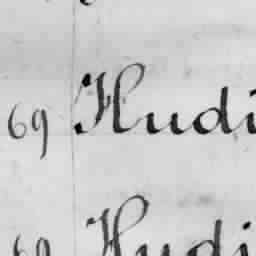 69 Hudi
69 Hudi